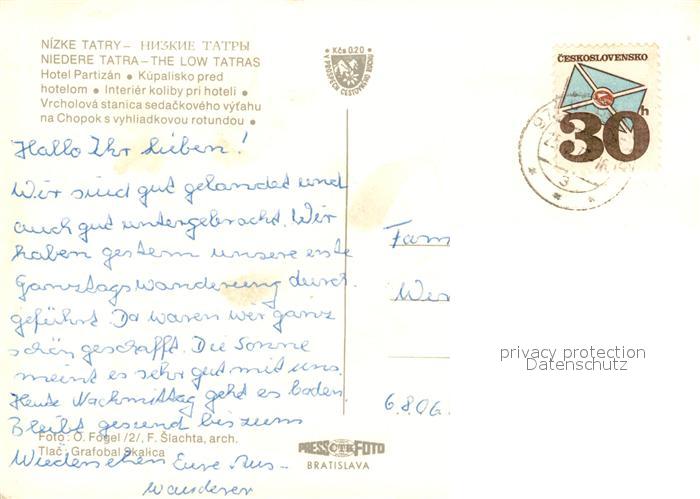 NÍZKE TATRY – НИЗКИЕ ТАТРЫ
NIEDERE TATRA – THE LOW TATRAS
Hotel Partizán • Kúpalisko pred
hotelom • Interiér koliby pri hoteli •
Vrcholová stanica sedačkového výťahu
na Chopok s vyhliadkovou rotundou •
Kčs 0.20
V PROSPECH CESTOVNÉHO RUCHU
ČESKOSLOVENSKO
30 h
3
Hallo Ihr Lieben!
Wir sind gut gelandet und
auch gut untergebracht. Wir
haben gestern unsere erste
Ganztagswanderung durch-
geführt. Da waren wir ganz
schön geschafft. Die Sonne
meint es sehr gut mit uns.
Heute Nachmittag geht es baden.
Bleibt gesund bis zum
Wiedersehen Eure Aus-
wanderer
Fam
Wer
6.806.
privacy protection
Datenschutz
Foto: O. Fogel /2/, F. Šlachta, arch.
Tlač: Grafobal Skalica
PRESS ČTK FOTO
BRATISLAVA